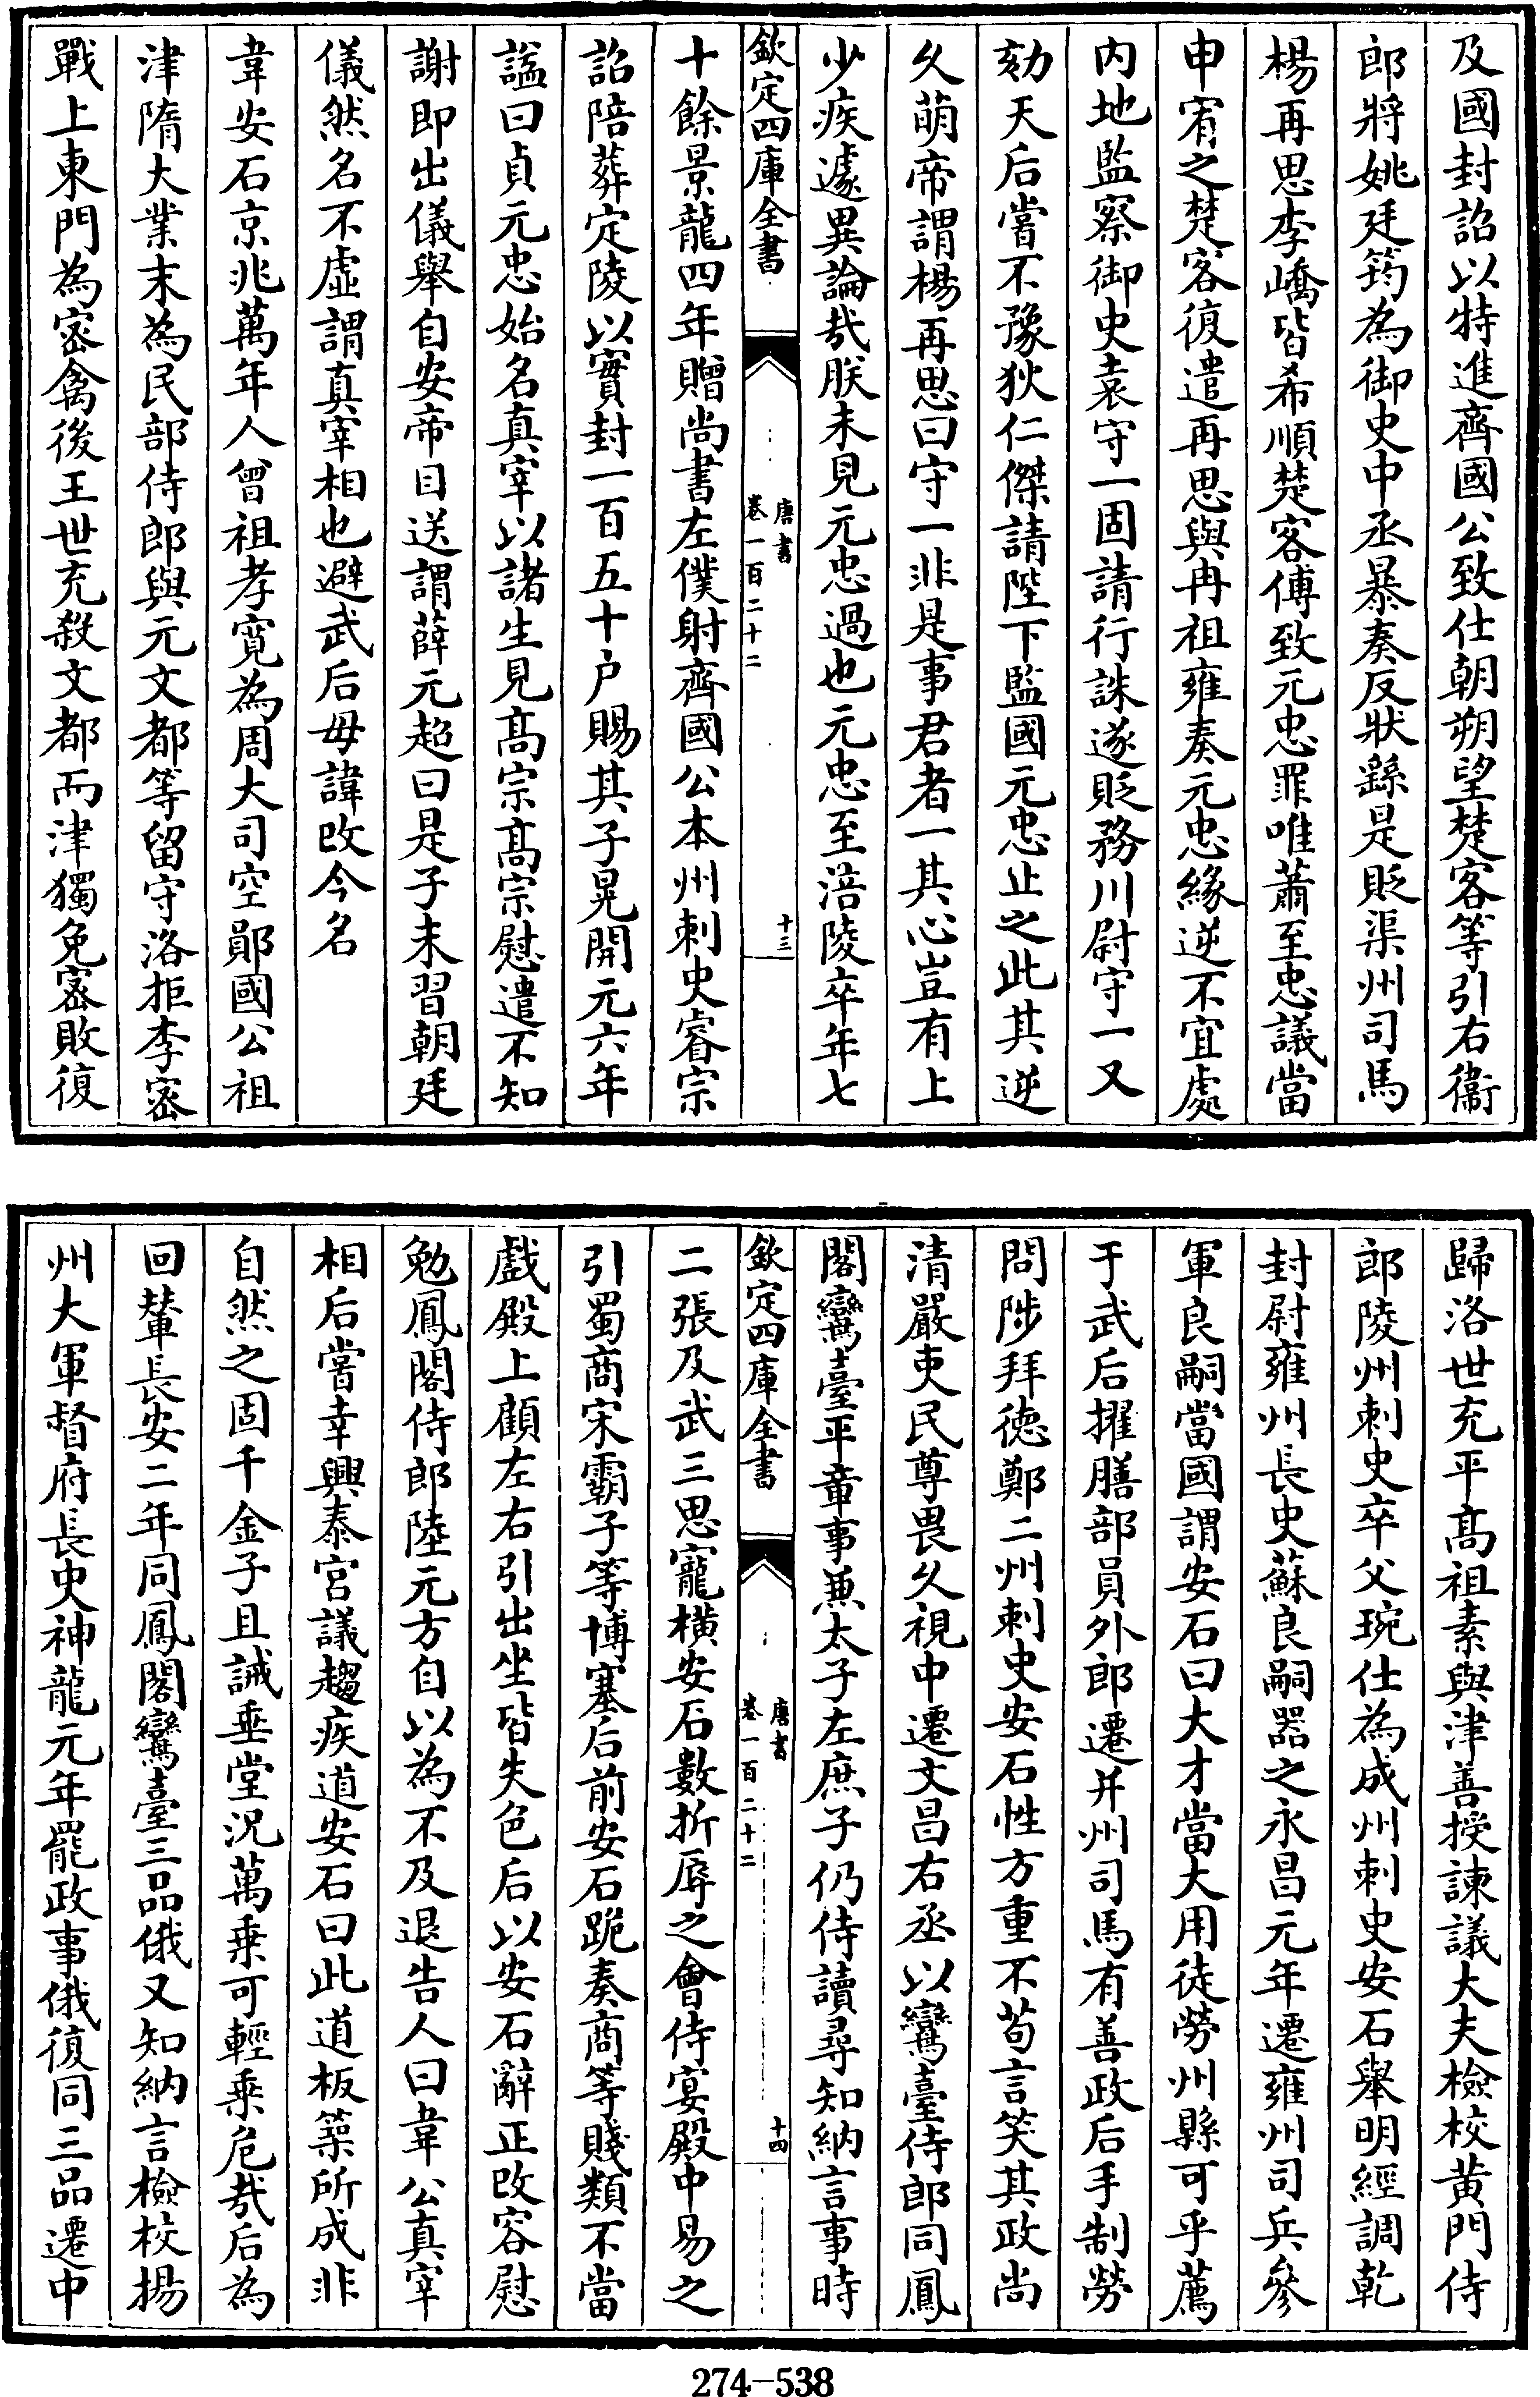 及國封詔以特進齊國公致仕朝朔望楚客等引右衞
郎將姚廷筠為御史中丞暴奏反狀繇是貶渠州司馬
楊再思李嶠皆希順楚客傅致元忠罪唯蕭至忠議當
申宥之楚客復遣再思與冉祖雍奏元忠緣逆不宜處
内地監察御史袁守一固請行誅遂貶務川尉守一又
劾天后嘗不豫狄仁傑請陛下監國元忠止之此其逆
久萌帝謂楊再思曰守一非是事君者一其心豈有上
少疾遽異論哉朕未見元忠過也元忠至涪陵卒年七
欽定四庫全書
唐書
卷一百二十二
十三
十餘景龍四年贈尚書左僕射齊國公本州刺史睿宗
詔陪葬定陵以實封一百五十户賜其子晃開元六年
謚曰貞元忠始名真宰以諸生見髙宗髙宗慰遣不知
謝即出儀舉自安帝目送謂薛元超曰是子未習朝廷
儀然名不虛謂真宰相也避武后母諱改今名
韋安石京兆萬年人曾祖孝寛為周大司空鄖國公祖
津隋大業末為民部侍郎與元文都等留守洛拒李密
戰上東門為密禽後王世充殺文都而津獨免密敗復
歸洛世充平髙祖素與津善授諫議大夫檢校黄門侍
郎陵州刺史卒父琬仕為成州刺史安石舉明經調乾
封尉雍州長史蘇良嗣器之永昌元年遷雍州司兵參
軍良嗣當國謂安石曰大才當大用徒勞州縣可乎薦
于武后擢膳部員外郎遷并州司馬有善政后手制勞
問陟拜徳鄭二州刺史安石性方重不茍言笑其政尚
清嚴吏民尊畏久視中遷文昌右丞以鸞臺侍郎同鳳
閣鸞臺平章事兼太子左庶子仍侍讀尋知納言事時
欽定四庫全書
唐書
卷一百二十二
十四
二張及武三思寵横安石數折辱之會侍宴殿中易之
引蜀商宋霸子等博塞后前安石跪奏商等賤類不當
戲殿上顧左右引出坐皆失色后以安石辭正改容慰
勉鳳閣侍郎陸元方自以為不及退告人曰韋公真宰
相后嘗幸興泰宫議趨疾道安石曰此道板築所成非
自然之固千金子且誡垂堂况萬乗可輕乗危哉后為
回輦長安二年同鳳閣鸞臺三品俄又知納言檢校揚
州大軍督府長史神龍元年罷政事俄復同三品遷中
274-538